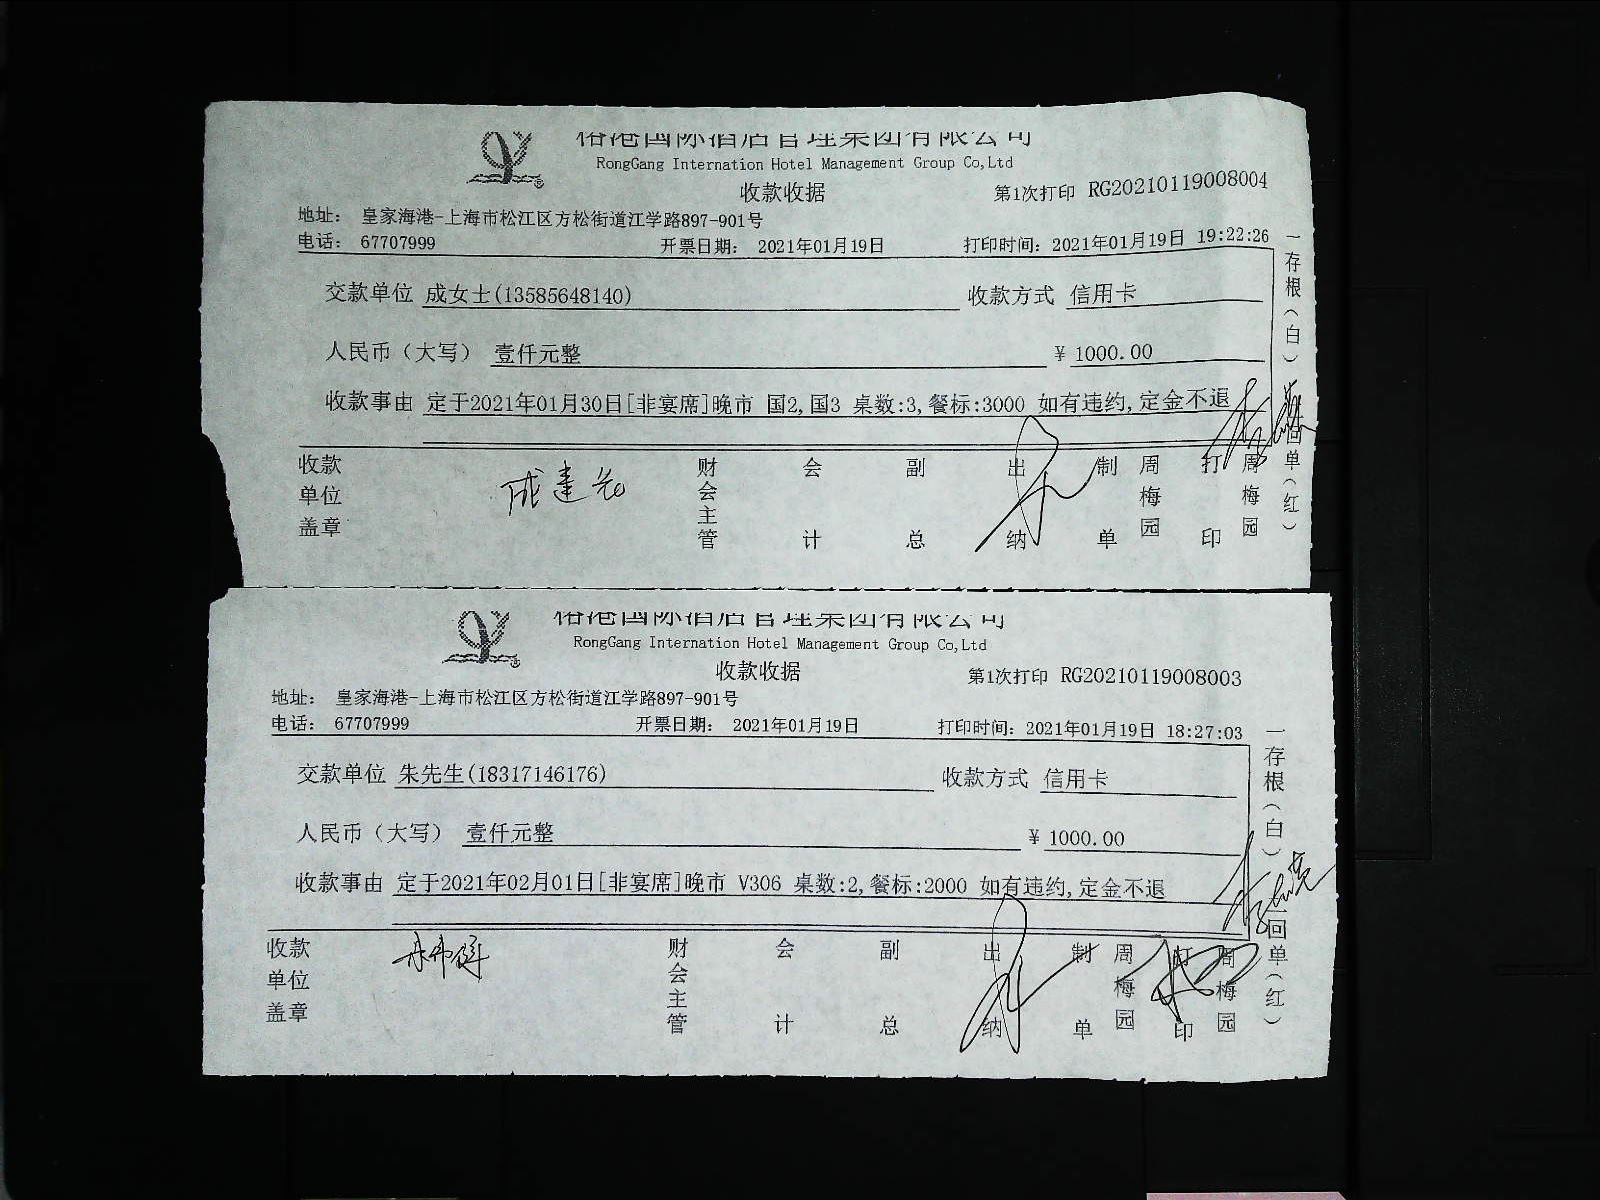 裕港国际酒店管理集团有限公司
RongGang Internation Hotel Management Group Co,Ltd
收款收据 第1次打印 RG20210119008004
地址： 皇家海港-上海市松江区方松街道江学路897-901号
电话： 67707999 开票日期： 2021年01月19日 打印时间：2021年01月19日 19:22:26
交款单位 成女士(13585648140) 收款方式 信用卡
人民币（大写） 壹仟元整 ￥ 1000.00
收款事由 定于2021年01月30日[非宴席]晚市 国2,国3 桌数:3,餐标:3000 如有违约,定金不退
收款单位盖章 财会主管 会计 副总 出纳 制单 周梅园 打印 周梅园
一存根（白） 二回单（红）
裕港国际酒店管理集团有限公司
RongGang Internation Hotel Management Group Co,Ltd
收款收据 第1次打印 RG20210119008003
地址： 皇家海港-上海市松江区方松街道江学路897-901号
电话： 67707999 开票日期： 2021年01月19日 打印时间：2021年01月19日 18:27:03
交款单位 朱先生(18317146176) 收款方式 信用卡
人民币（大写） 壹仟元整 ￥ 1000.00
收款事由 定于2021年02月01日[非宴席]晚市 V306 桌数:2,餐标:2000 如有违约,定金不退
收款单位盖章 财会主管 会计 副总 出纳 制单 周梅园 打印 周梅园
一存根（白） 二回单（红）